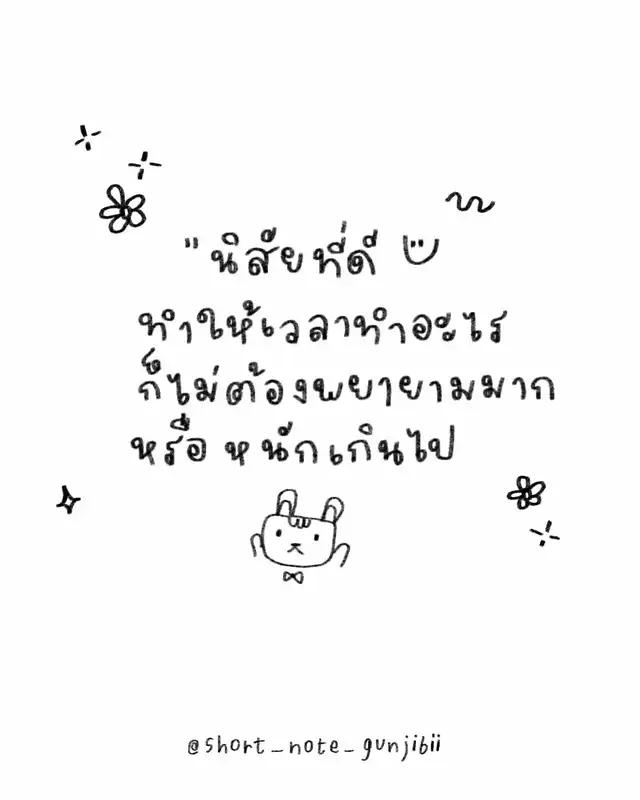 "นิสัยที่ดี
ทำให้เวลาทำอะไร
ก็ไม่ต้องพยายามมาก
หรือ หนักเกินไป
@short_note_gunjibii